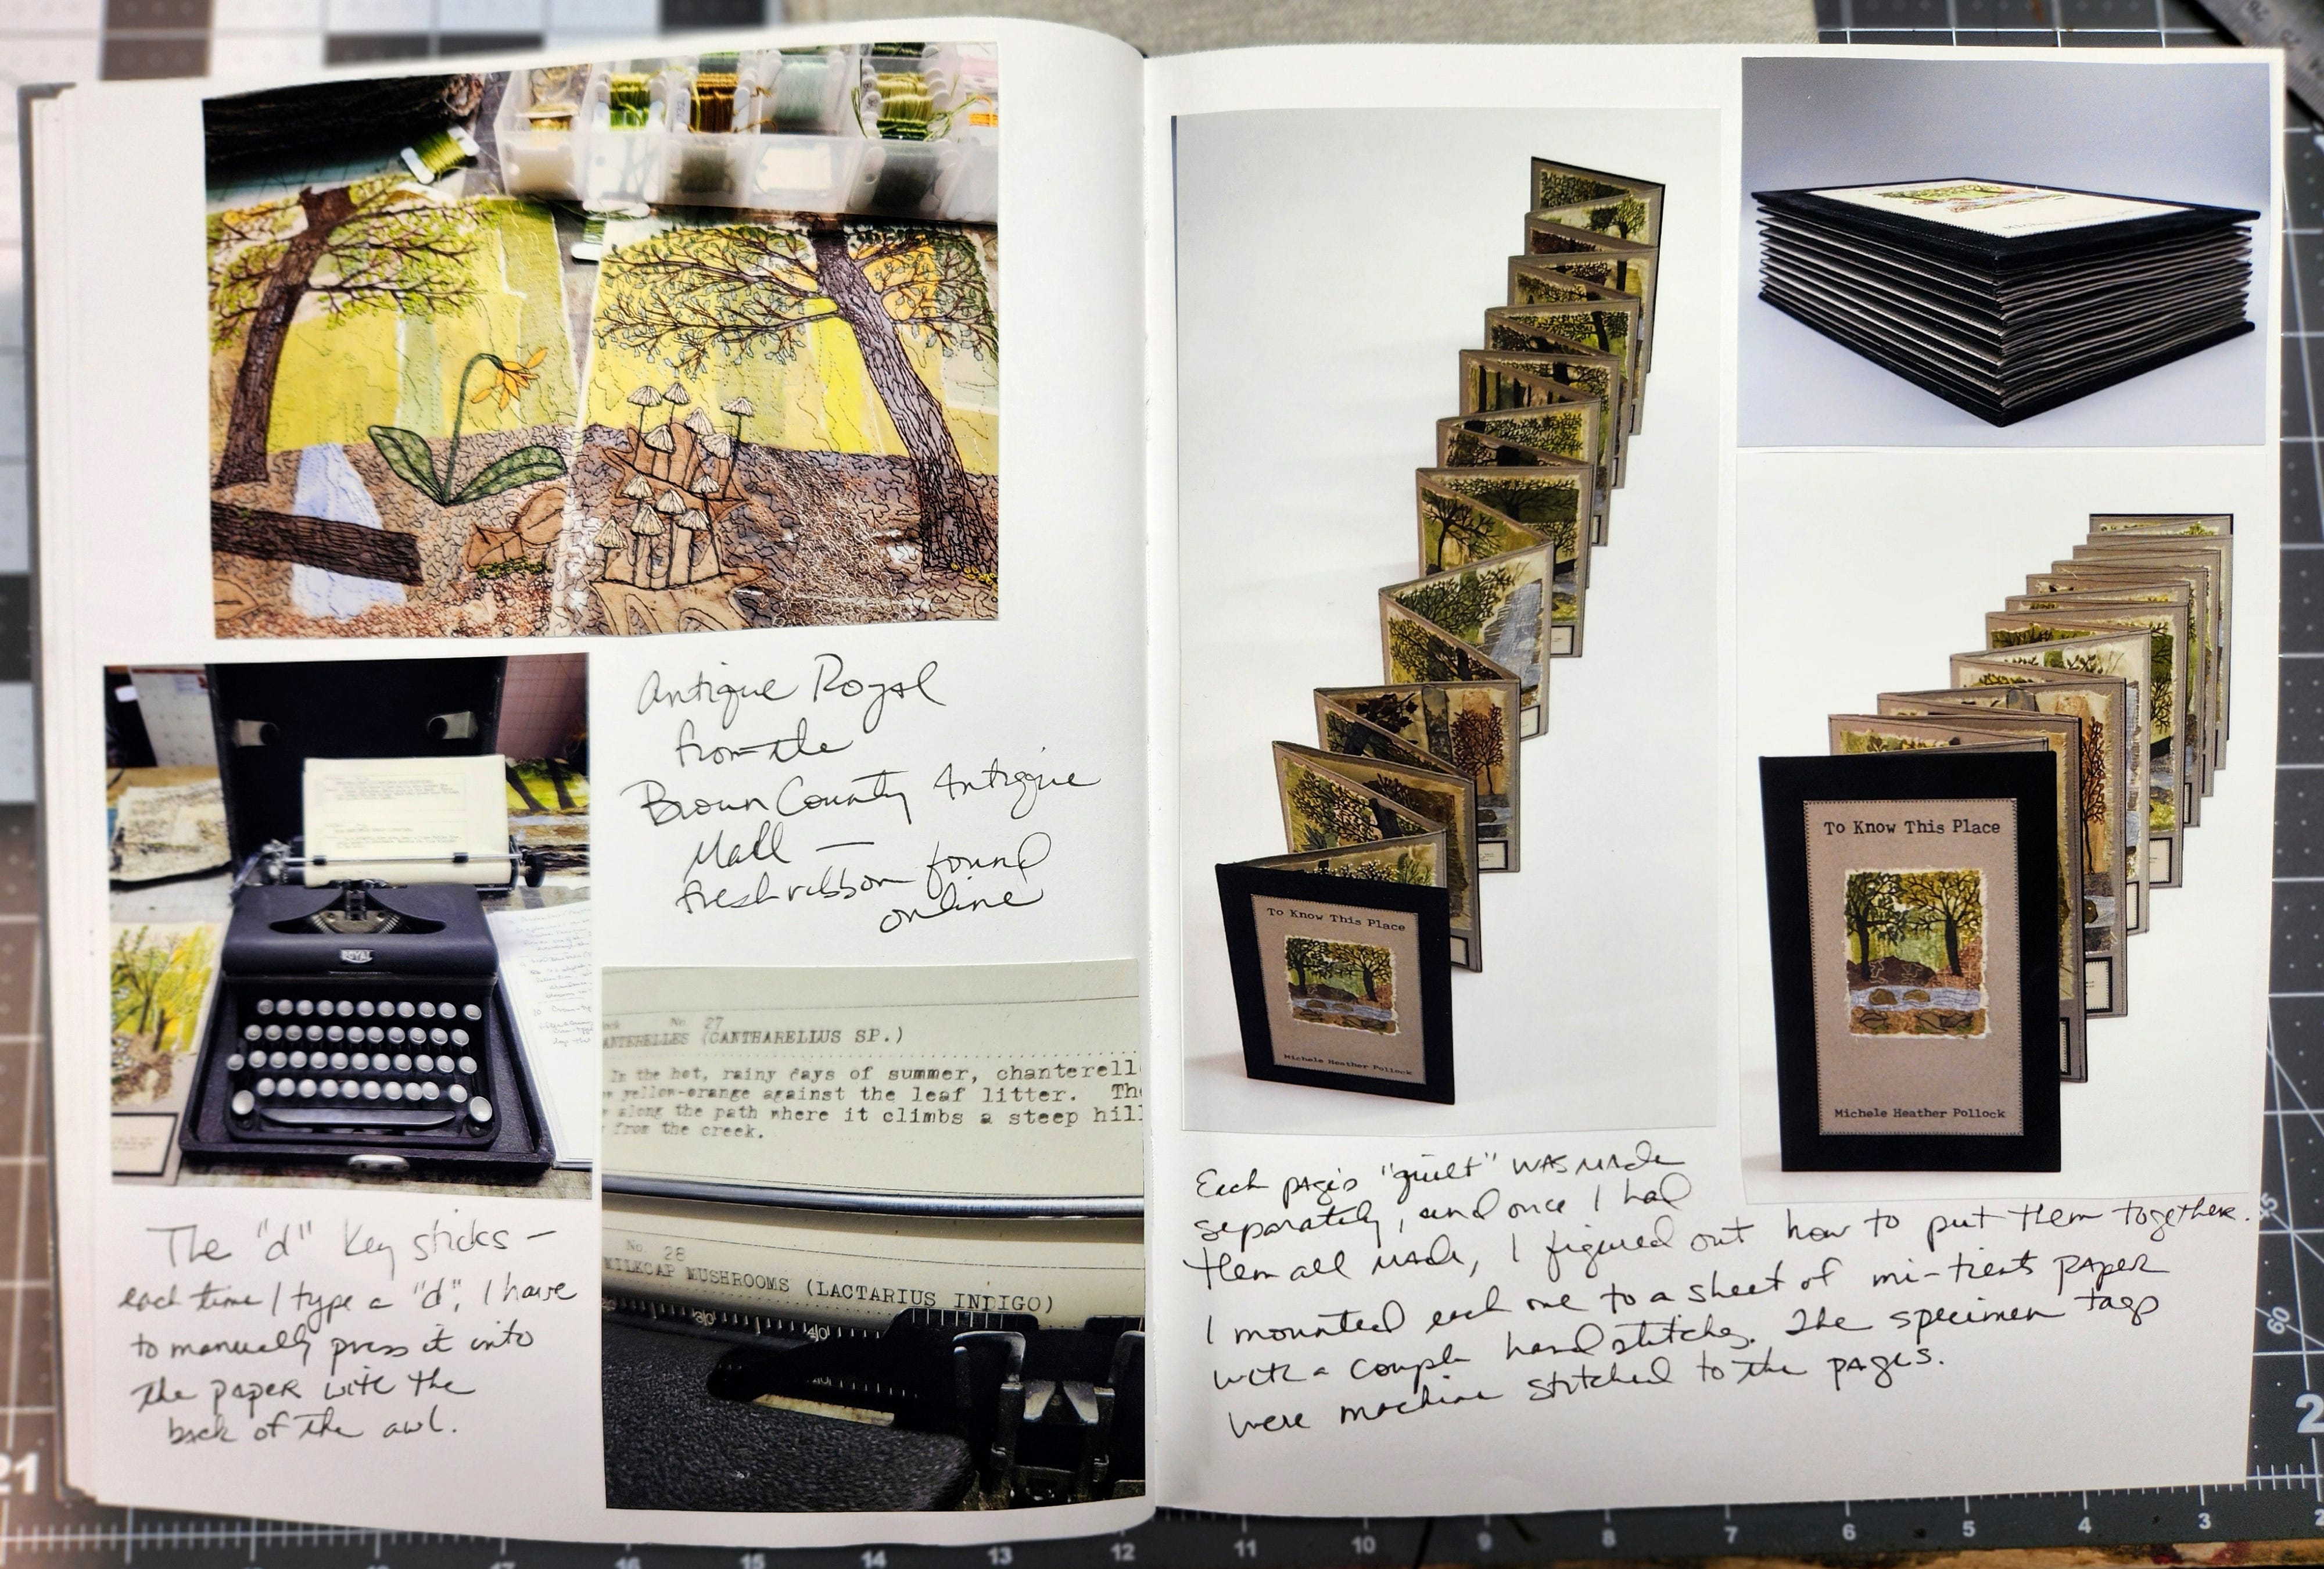 Antique Royal
from the
Brown County Antique
Mall —
fresh ribbon found
online
ROYAL
The "d" key sticks —
each time I type a "d", I have
to manually press it into
the paper with the
back of the awl.
No. 27
ANTERELLES (CANTHARELLUS SP.)
In the hot, rainy days of summer, chanterell
yellow-orange against the leaf litter. Th
along the path where it climbs a steep hil
from the creek.
No. 28
MILKCAP MUSHROOMS (LACTARIUS INDIGO)
30 40
To Know This Place
Michele Heather Pollock
To Know This Place
Michele Heather Pollock
Each page's "quilt" was made
separately, and once I had
them all made, I figured out how to put them together.
I mounted each one to a sheet of mi-tients paper
with a couple hand stitches. The specimen tags
were machine stitched to the pages.
21 17 16 15 14 13 12 11 10 9 8 7 6 5 4 3 2
60